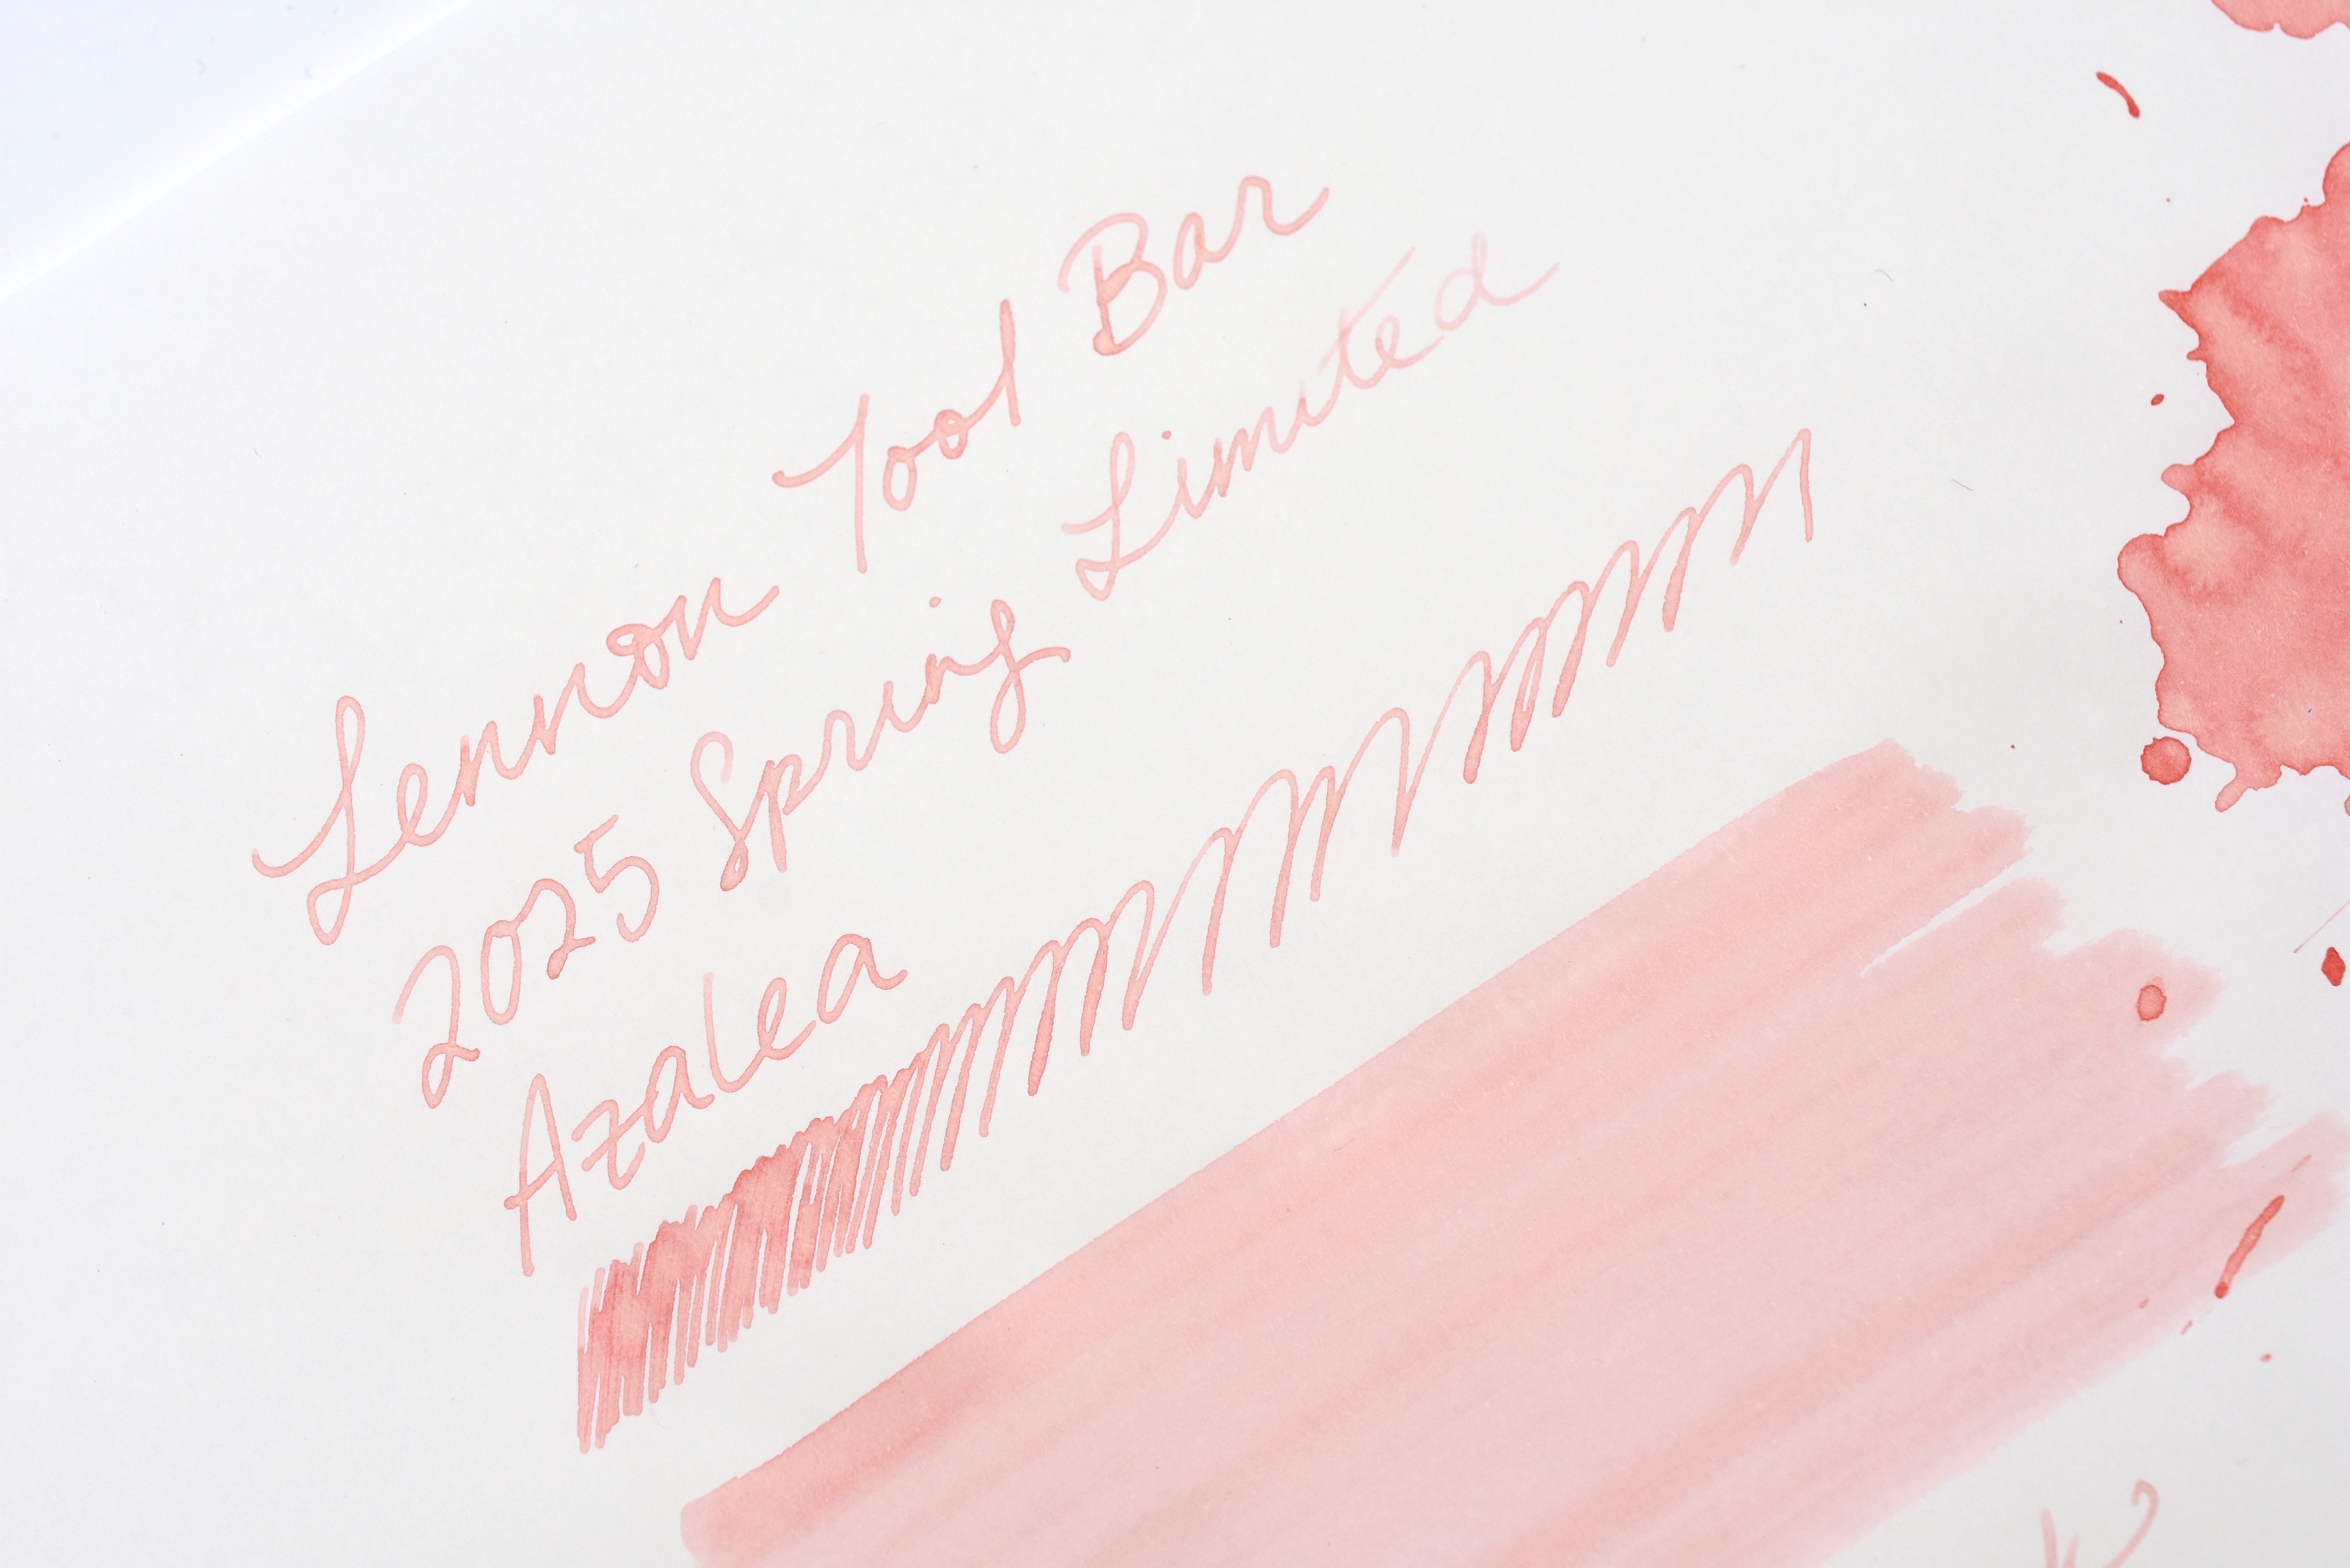 Lennon Tool Bar
2025 Spring Limited
Azalea